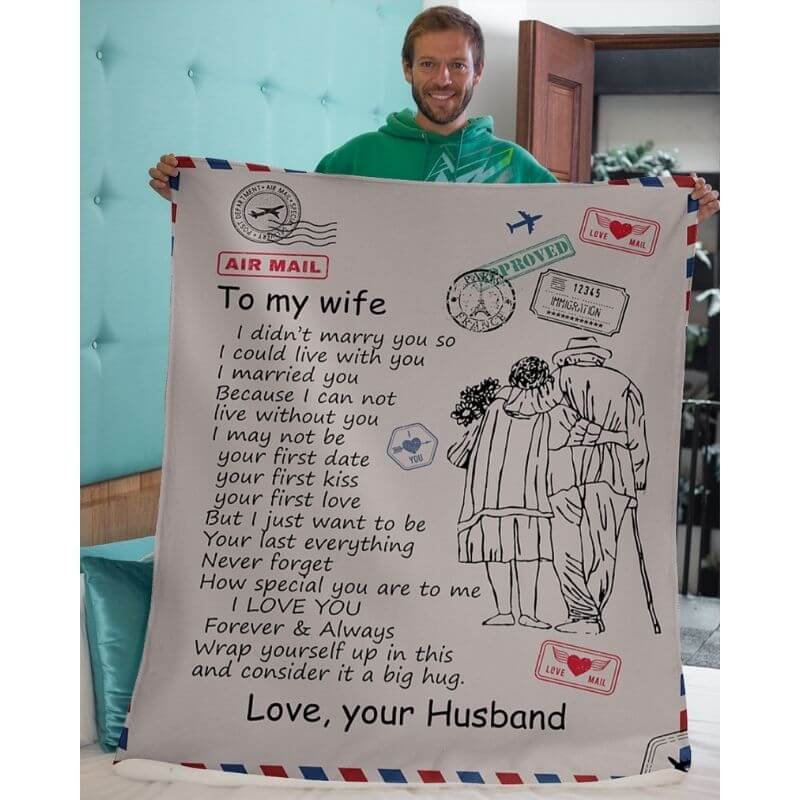 POST DEPARTMENT • AIR MAIL •
AIR MAIL
PROVED
LOVE MAIL
PARIS
FRANCE
12345
IMMIGRATION
To my wife
I didn't marry you so
I could live with you
I married you
Because I can not
live without you
I may not be
your first date
your first kiss
your first love
But I just want to be
Your last everything
Never forget
How special you are to me
I LOVE YOU
Forever & Always
Wrap yourself up in this
and consider it a big hug.
Love, your Husband
I
YOU
LOVE MAIL